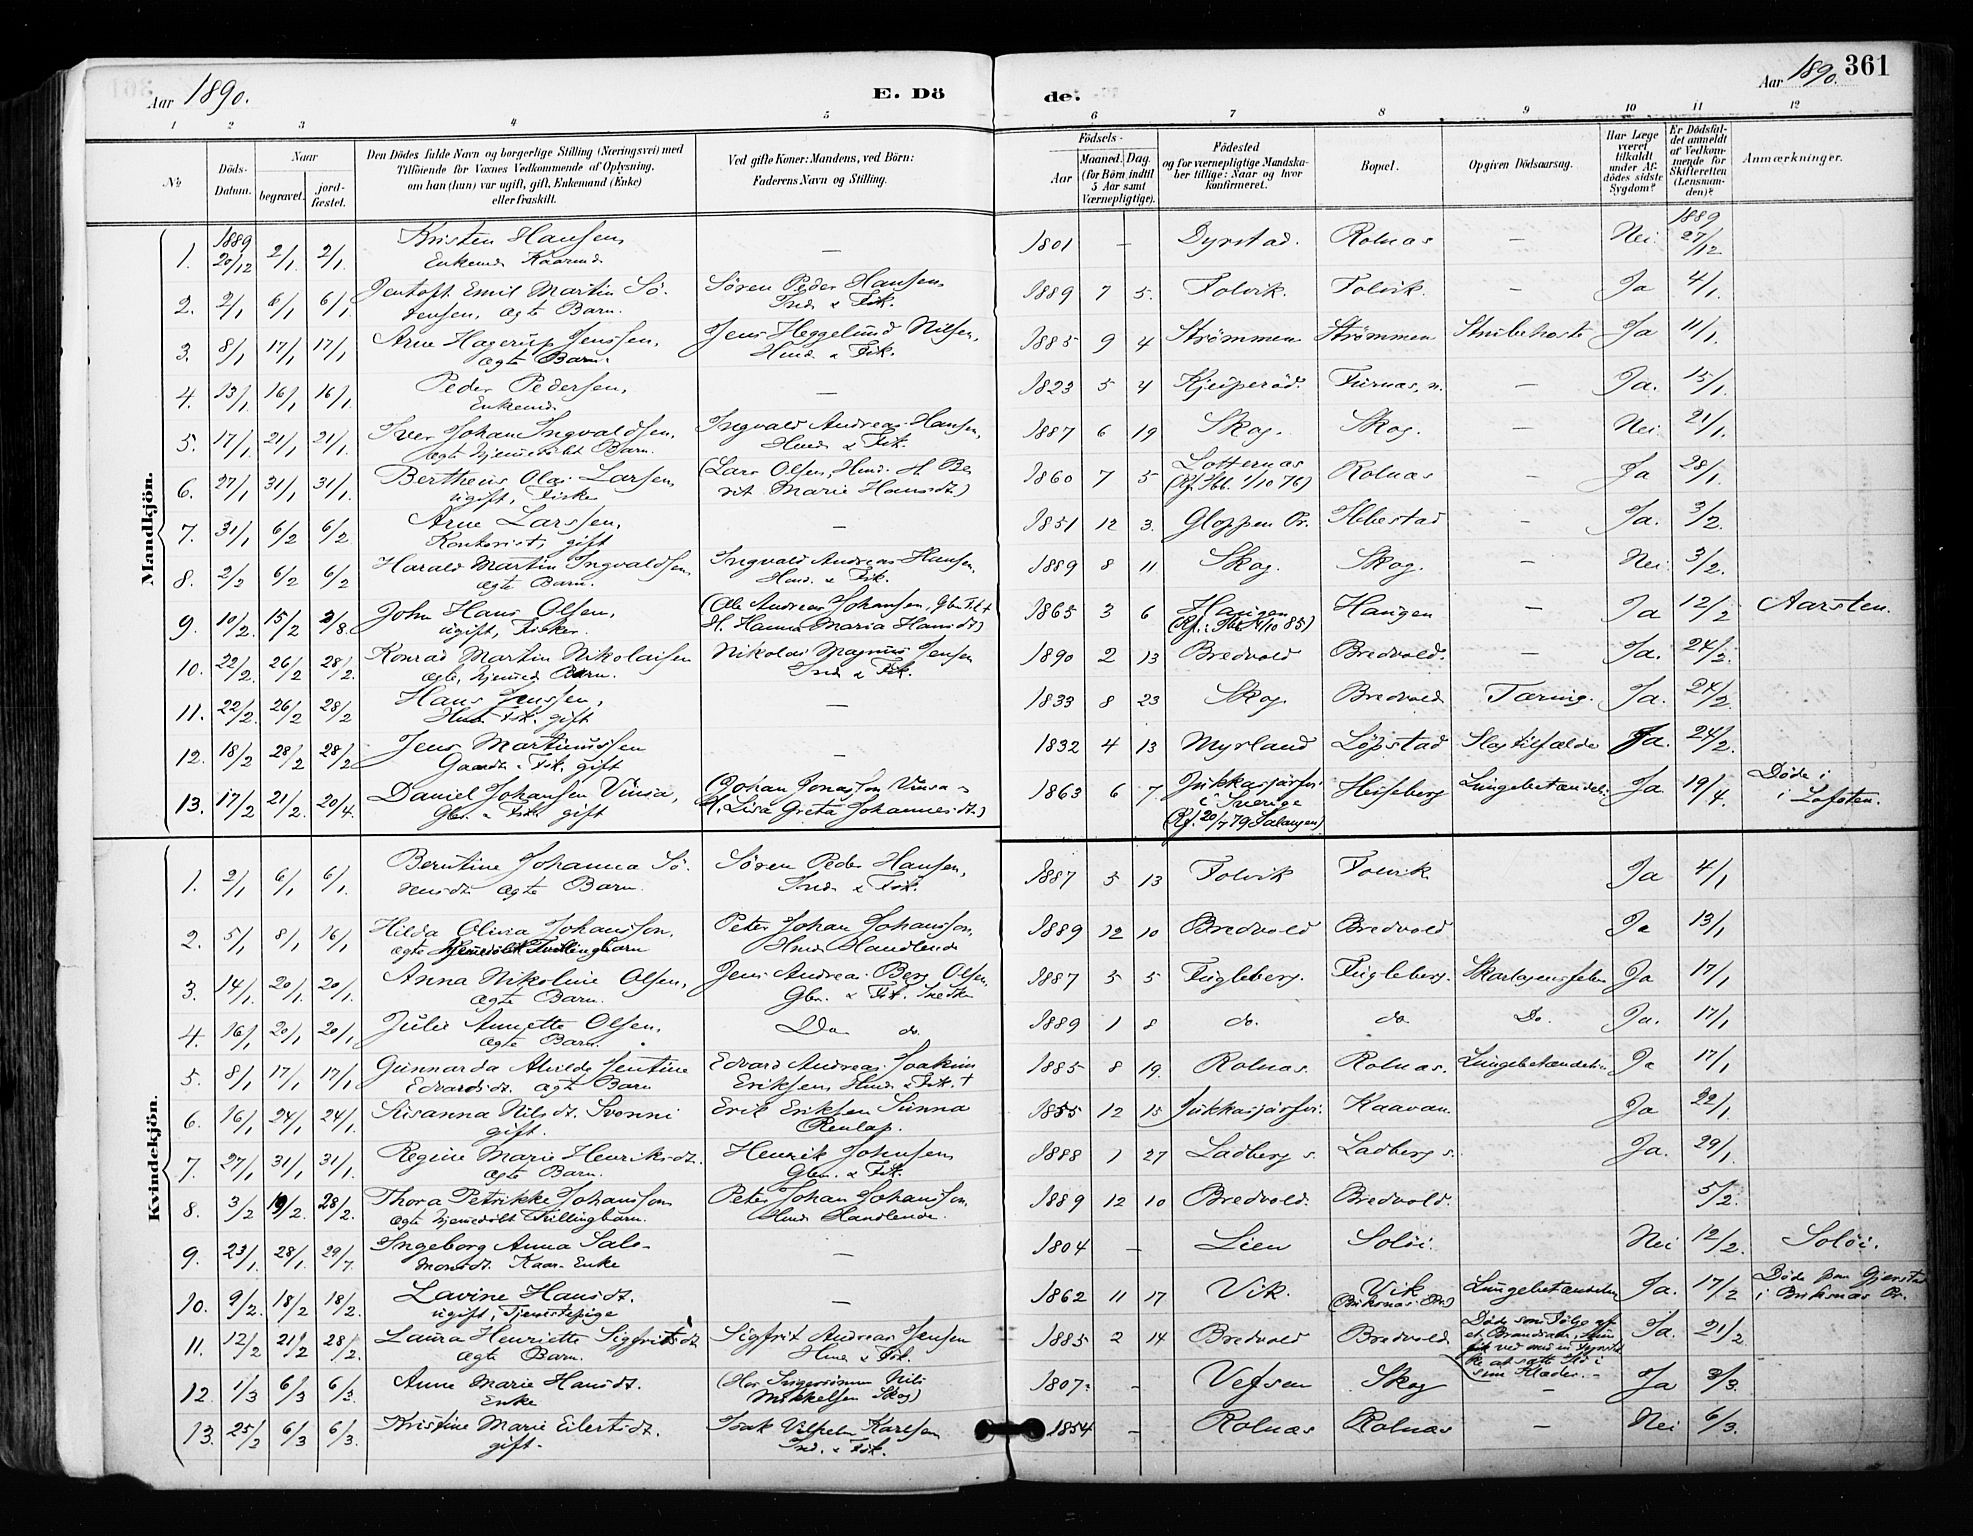 Aar 1890.
E. Dö
de.
Aar 1890.
361
1 2 3 4 5 6 7 8 9 10 11 12
No
Döds-Datum.
Naar
begravet.
jord-fæstet.
Den Dödes fulde Navn og borgerlige Stilling (Næringsvei) med
Tilföiende for Voxnes Vedkommende af Oplysning,
om han (hun) var ugift, gift, Enkemand (Enke)
eller fraskilt.
Ved gifte Koner: Mandens, ved Börn:
Faderens Navn og Stilling.
Födsels-
Aar
Maaned. Dag.
(for Börn indtil
5 Aar samt
Værnepligtige).
Födested
og for værnepligtige Mandska-
ber tillige: Naar og hvor
konfirmeret.
Bopel.
Opgiven Dödsaarsag.
Har Læge
været
tilkaldt
under Af-
dödes sidste
Sygdom?
Er Dödsfal-
det anmeldt
af Vedkom-
mende for
Skifteretten
(Lensman-
den)?
Anmærkninger.
Mandkjön.
1. 1889 20/12 2/1 2/1 Kristen Hansen, Enkemd. Kaarmd. — 1801 — Dyrstad. Rolnæs — Nei 1889 27/12
2. 2/1 6/1 6/1 Jentoft Emil Martin Sö-rensen, ægte Barn. Sören Peder Hansen, Ind. & Fisk. 1889 7 5. Folvik. Folvik. — Ja 4/1.
3. 8/1 17/1 17/1 Arne Hagerup Jenssen, ægte Barn. Jens Heggelund Nilsen, Hmd. & Fisk. 1885 9 4 Strömmen Strömmen Strubehoste Ja 11/1.
4. 13/1 16/1 16/1 Peder Pedersen, Enkemd. — 1823 5 4 Furnæs, n. — Ja. 15/1.
5. 17/1 21/1 21/1 Iver Johan Ingvaldsen, ægte hjemedöbt Barn. Ingvald Andreas Hansen, Hmd. & Fisk. 1887 6 19 Skog. Skog. — Nei 21/1.
6. 27/1 31/1 31/1 Bertheus Olai Larsen, ugift, Fisker (Lars Olsen, Hmd. H. Be-rit Marie Hansdt.) 1860 7 5 Lotternæs (Kf. Ibb. 1/10 76) Rolnæs — Ja 28/1.
7. 31/1 6/2 6/2 Arne Larssen, Kontorist, gift — 1851 12 3. Gloppen Pr. Ibbestad — Ja. 3/2.
8. 2/2 6/2 6/2 Harald Martin Ingvaldsen, ægte Barn. Ingvald Andreas Hansen, Hmd. & Fisk. 1889 8 11 Skog. Skog. — Nei 3/2.
9. 10/2 15/2 3/8. John Hans Olsen, ugift, Fisker. (Ole Andreas Johansen, Gbr. Fisk. + H. Hanna Maria Hansdt.) 1865 3 6 Haugen Haugen — Ja 12/2 Aarsten.
10. 22/2. 26/2 28/2. Konrad Martin Nikolaisen ægte, hjemmed. Barn. Nikolai Magnus Jensen Ind. & Fisk. 1890 2 13 Bredvold Bredvold. — Ja. 24/2.
11. 22/2. 26/2 28/2 Hans Jenssen, Hmd. Fisk. gift — 1833 8 23 Skog Bredvold Tæring. Ja. 24/2.
12. 18/2 28/2 28/2 Jens Martinussen Gaardb. & Fisk. gift — 1832 4 13 Myrland Löpstad Slagtilfælde Ja. 24/2.
13. 17/2 21/2. 20/4. Daniel Johansen Vinsa, Gbr. & Fisk. gift (Johan Jonasson Vinsa & H. Lisa Greta Johannesdt.) 1863 6 7 Jukkasjärfvi i Sverige (Kf. 20/7 79 Salangen) Heiseberg Lungebetændelse Ja. 19/4. Döde i Lofoten.
Kvindekjön.
1. 2/1 6/1 6/1. Berntine Johanna Sö-rensdt. ægte Barn. Sören Peder Hansen, Ind. & Fisk. 1887 5 13 Folvik Folvik Ja 4/1
2. 5/1 8/1 16/1 Hilda Olivia Johansson, ægte hjemedöbt Trillingbarn Peter Johan Johansson, Hmd. Handlende 1889 12 10 Bredvold Bredvold Ja 13/1
3. 14/1 20/1 20/1 Anna Nikoline Olsen, ægte Barn. Jens Andreas Berg Olsen, Gbr. & Fisk. Snedker 1887 5 5 Fugleberg. Fugleberg. Skarlagensfeber Ja 17/1
4. 16/1 20/1 20/1 Julie Annette Olsen, ægte Barn. Do do 1889 1 8 do. do. Do. Ja. 17/1
5. 8/1 17/1 17/1 Gunnarda Alvilde Jentine Edvardsdt. ægte Barn Edvard Andreas Joakim Eriksen Hmd. & Fisk. + 1885 8 19. Rolnæs. Rolnæs. Lungebetændelse Ja 17/1
6. 16/1 24/1 24/1 Susanna Nilsdt. Svonni gift. Erik Eriksen Sunna Renlap. 1855 12 15 Jukkasjärfvi. Kaavan Ja 22/1
7. 27/1 31/1 31/1 Regine Marie Henriksdt. ægte Barn. Henrik Johnsen Gbr. & Fisk. 1888 1 27 Ladberg s. Ladberg s. Ja. 29/1.
8. 3/2 19/2. 28/2. Thora Petrikke Johansson ægte hjemedöbt Trillingbarn. Peter Johan Johansson, Hmd. Handlende. 1889 12 10 Bredvold. Bredvold. 5/2
9. 23/1. 28/1. 29/7. Ingeborg Anna Salo-monsdt. Kaar-Enke — 1804 — Lien Solöi. Nei 12/2. Solöi.
10. 9/2. 18/2 18/2. Lavine Hansdt. ugift, Tjenestepige — 1862 11 17 Vik. Vik (Buksnæs Pr.) Lungebetændelse Ja. 17/2 Döde paa Gjerstad i Buksnæs Pr.
11. 12/2 21/2 28/2. Laura Henriette Sigfritsdt. ægte Barn. Sigfrit Andreas Jensen Hmd. & Fisk. 1885 2 14 Bredvold Bredvold. Döde som Fölge af et Brandsaar, hun fik ved med en Fyrstik-ke at sætte Ild i sine Klæder. Ja. 21/2
12. 1/3 6/3 6/3 Anne Marie Hansdt. Enke (Hos Nils Mikkelsen Skog) 1807. — Vefsen Skog — Ja 3/3.
13. 25/2 6/3 6/3. Kristine Marie Eilertsdt. gift. Isak Vilhelm Karlsen Ind. & Fisk. 1854 — Rolnæs Rolnæs — Nei 6/3.